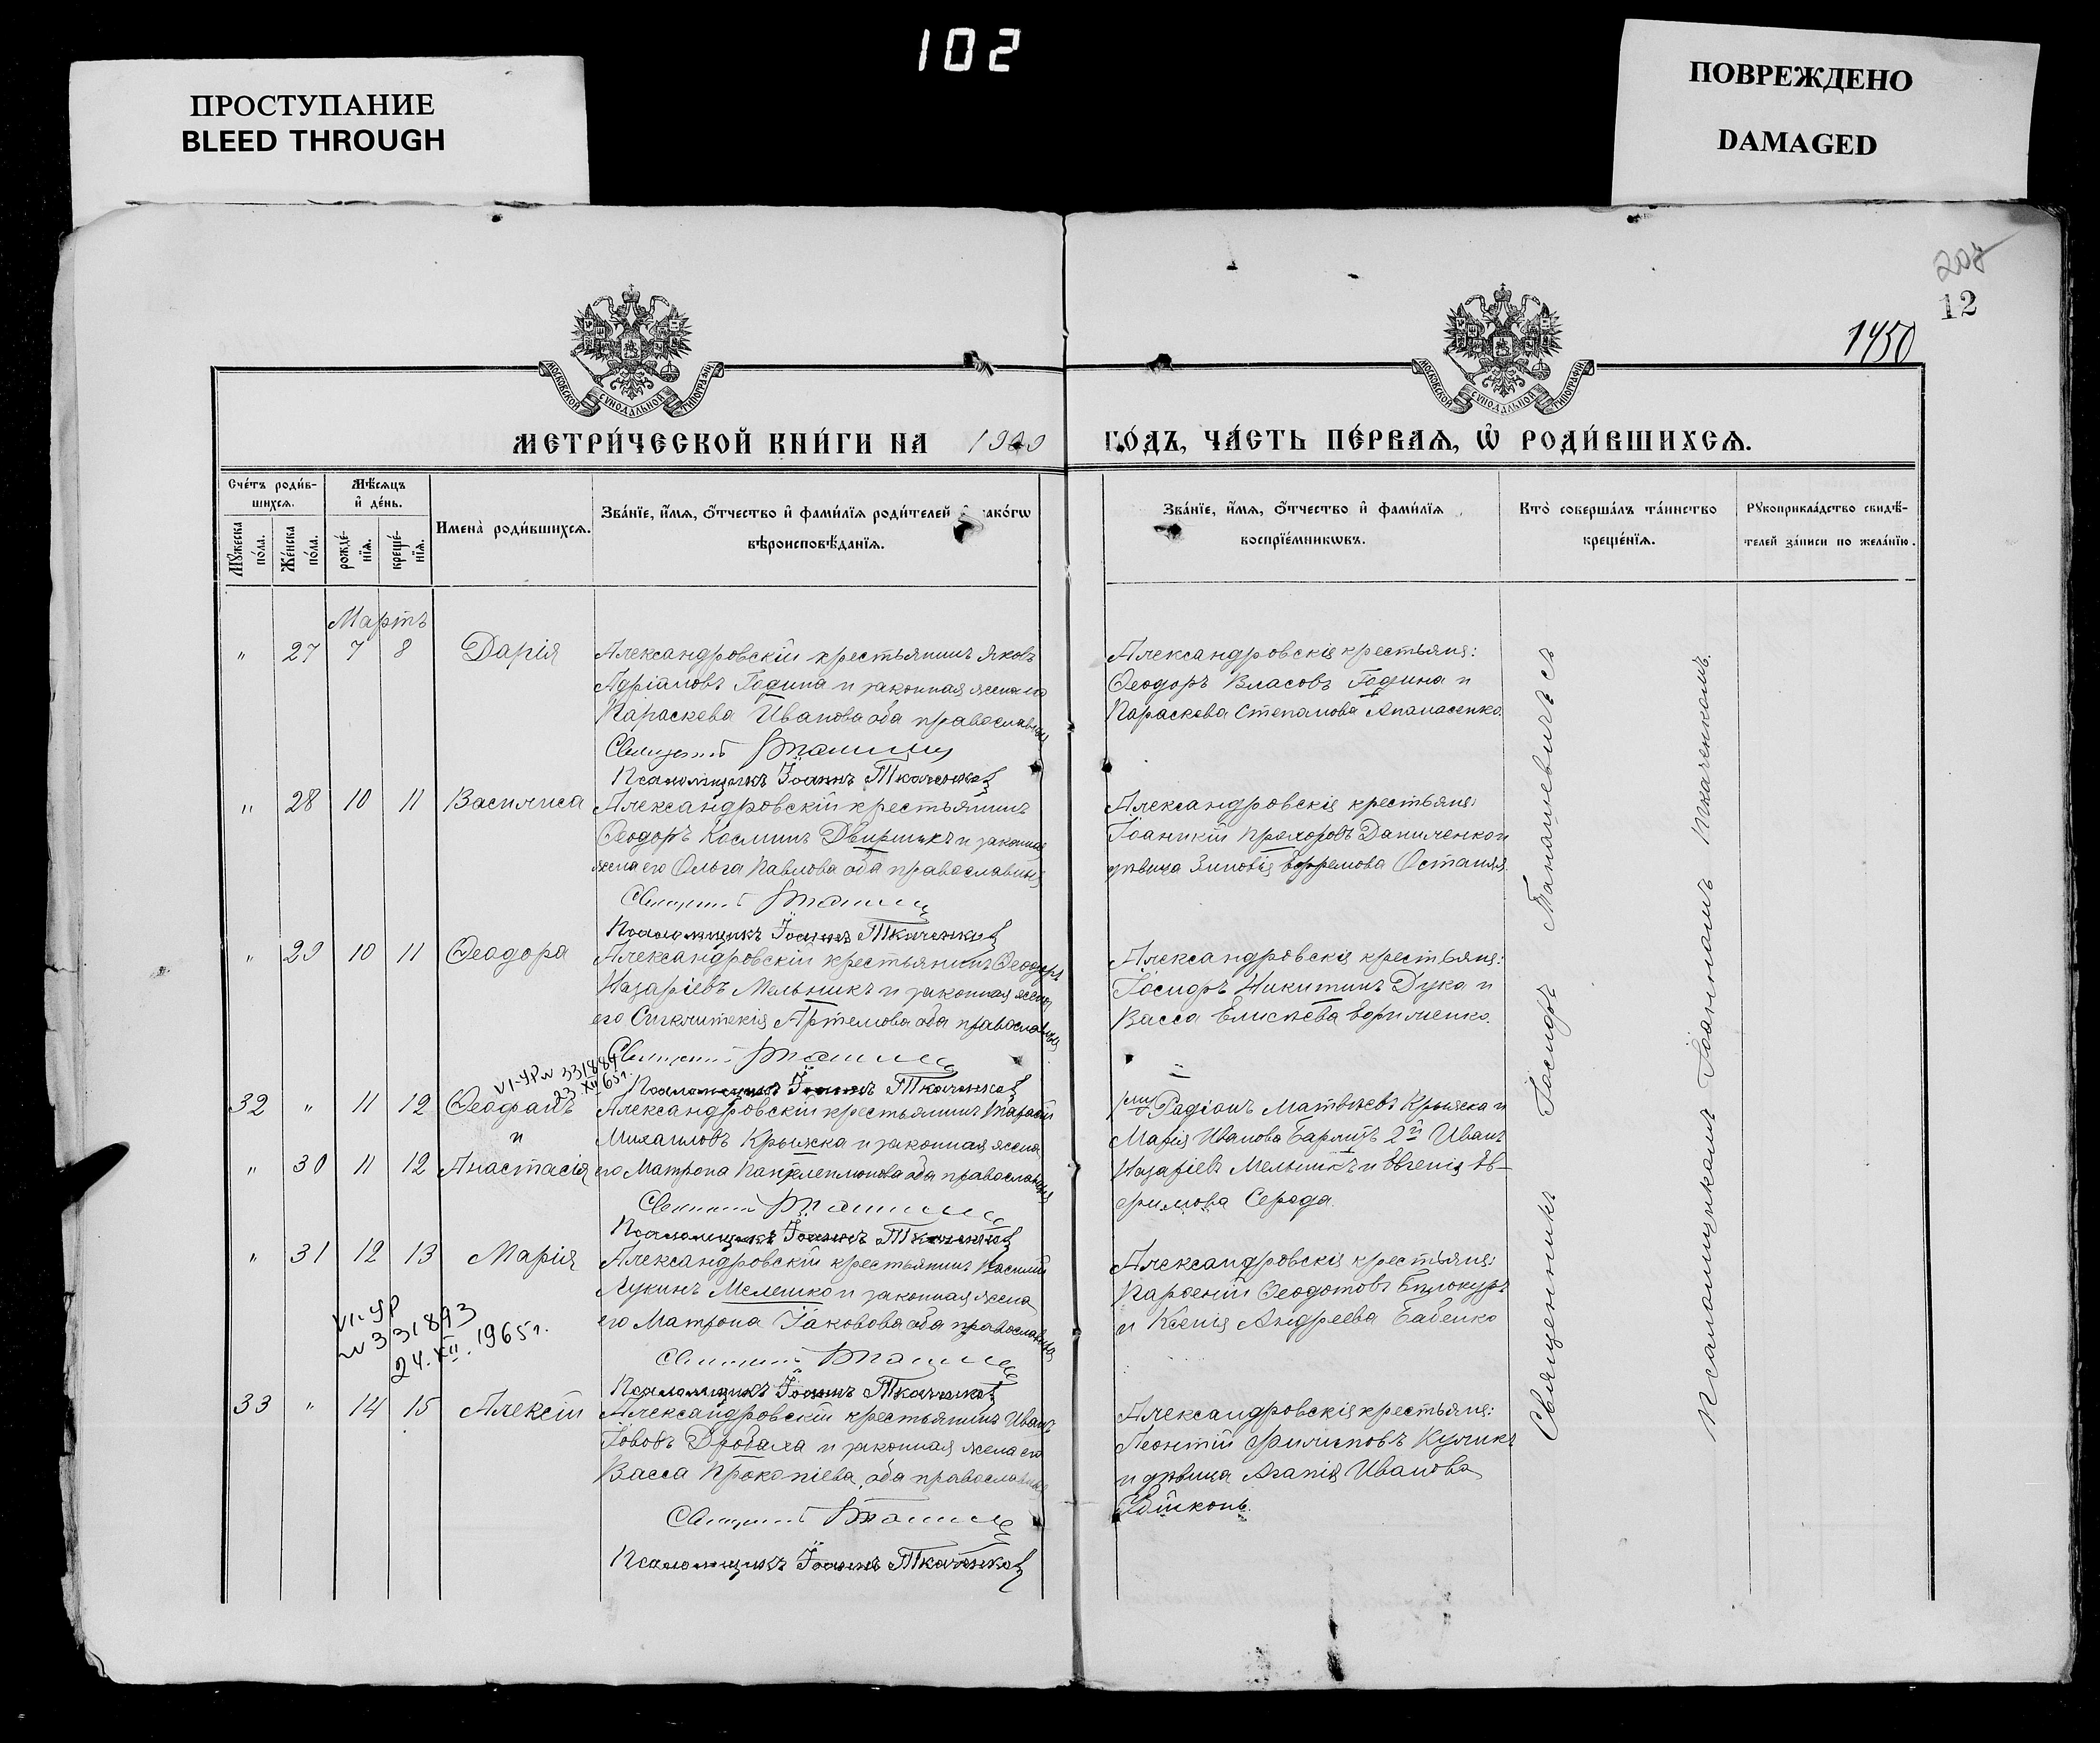 102
ПРОСТУПАНИЕ
BLEED THROUGH
ПОВРЕЖДЕНО
DAMAGED
208
12
1450
МОСКОВСКОЙ СѴНОДАЛЬНОЙ ТИПОГРАФИИ
МОСКОВСКОЙ СѴНОДАЛЬНОЙ ТИПОГРАФИИ
МЕТРИ́ЧЕСКОЙ КНИ́ГИ НА 1900 ГО́ДЪ, ЧА́СТЬ ПЕ́РВАЯ, Ѡ҆ РОДИ́ВШИХСЯ.
Сче́тъ роди́в-
шихся.
Мѣ́сяцъ
и҆ де́нь.
Мꙋ́жеска
по́ла.
Же́нска
по́ла.
рожде́-
нїя.
креще́-
нїя.
Имена̀ роди́вшихся.
Зва́нїе, и҆́мя, о҆́тчество и҆ фами́лїя роди́телей и҆ како́гѡ
вѣроисповѣ́данїя.
Зва́нїе, и҆́мя, о҆́тчество и҆ фами́лїя
воспрїе́мникѡвъ.
Кто̀ соверша́лъ та́инство
креще́нїя.
Рꙋкоприкла́дство свидѣ́-
телей за́писи по жела́нїю.
Мартъ
" 27 7 8 Дарія
Александровскій крестьянинъ Яковъ
Адріановъ Година и законная жена его
Параскева Иванова оба православные
Священникъ
Псаломщикъ Іоаннъ Ткаченковъ
Александровскіе крестьяне:
Ѳеодоръ Власовъ Година и
Параскева Степанова Апанасенко.
" 28 10 11 Василиса
Александровскій крестьянинъ
Ѳеодоръ Косминъ Двирникъ и законная
жена его Ольга Павлова оба православные
Священникъ
Псаломщикъ Іоаннъ Ткаченковъ
Александровскіе крестьяне:
Іоаникій Прохоровъ Даниленко и
дѣвица Зиновія Ефремова Остапяя
" 29 10 11 Ѳеодора
Александровскій крестьянинъ Ѳеодоръ
Назаріевъ Мельникъ и законная жена
его Сигклитекія Артемова оба православные
Священникъ
Псаломщикъ Іоаннъ Ткаченковъ
Александровскіе крестьяне:
Іосифъ Никитинъ Дука и
Васса Елисѣева Ефименко.
VI-УР № 331889
23.XII 65г.
32 " 11 12 Ѳеофанъ
и
" 30 11 12 Анастасія
Александровскій крестьянинъ Тарасій
Михаиловъ Крыжка и законная жена
его Матрона Пантелеимонова оба православные
Священникъ
Псаломщикъ Іоаннъ Ткаченковъ
Родіонъ Матвѣевъ Крыжка и
Марія Иванова 2й Иванъ
Назаріевъ Мельникъ и Евгенія Ев-
фимова Середа.
" 31 12 13 Марія
VI-УР
№ 331893
24.XII.1965г.
Александровскій крестьянинъ Василій
Лукинъ Мелешко и законная жена
его Матрона Іаковова оба православные
Священникъ
Псаломщикъ Іоаннъ Ткаченковъ
Александровскіе крестьяне:
Парѳеній Ѳеодотовъ Билокуръ
и Ксенія Андреева Бабенко
33 " 14 15 Алексій
Александровскій крестьянинъ Иванъ
Іововъ Дробаха и законная жена его
Васса Прокопіева, оба православные
Священникъ
Псаломщикъ Іоаннъ Ткаченковъ
Александровскіе крестьяне:
Леонтій Филиповъ Куликъ
и дѣвица Агапія Иванова
Священникъ Іосифъ Танашевичъ съ
Псаломщикомъ Іоанномъ Ткаченкомъ.